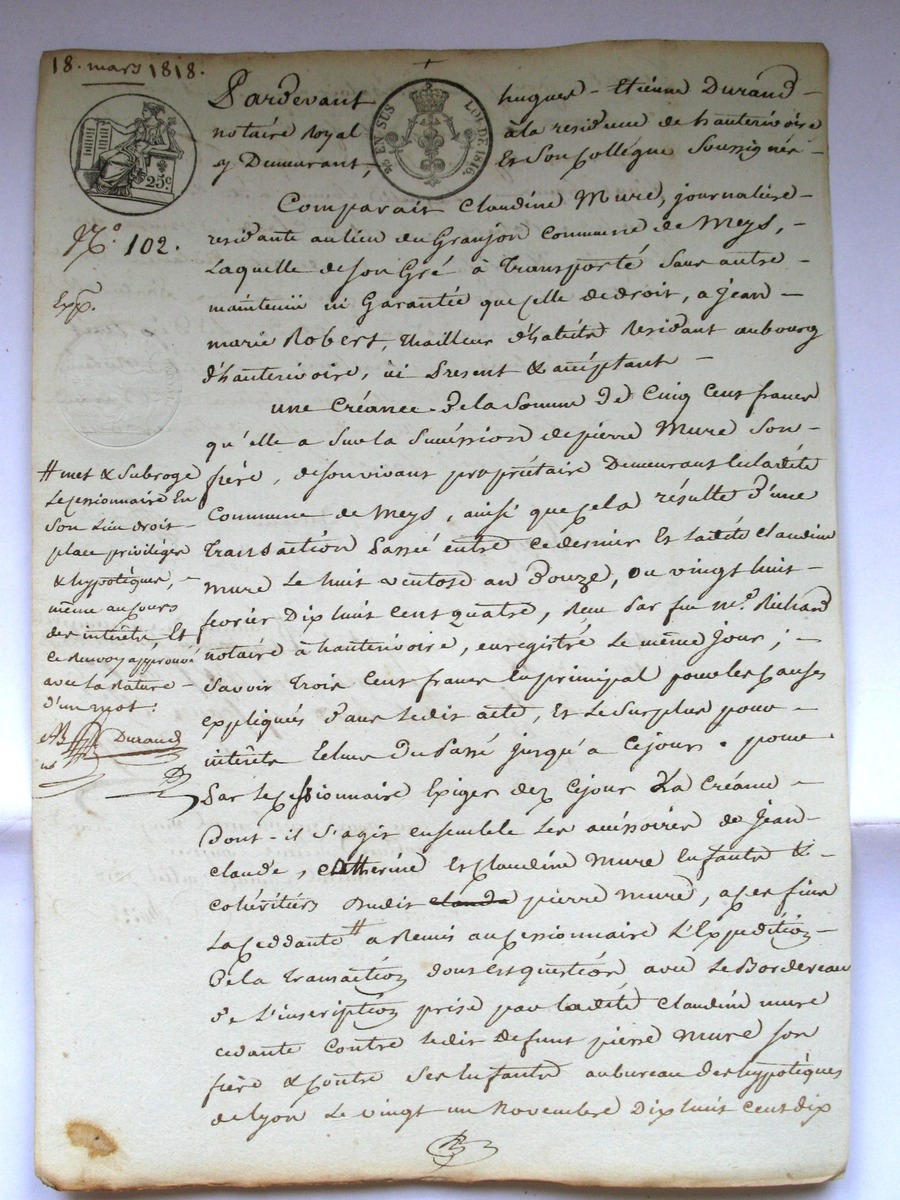 18. mars 1818.
Pardevant hugues - Etienne Durand -
notaire royal à la residence de hauterivoire
y Demeurant, Et Son Collègue Soussignés -
EN SUS LOI DE 1816.
25c
N.o 102.
Exp.
Comparait Claudine Mure, journalière -
residante au lieu du Granjon Commune de Meys, -
Laquelle de son Gré à Transporté Sans autre -
maintenüe ni Garantée que celle de droit, a jean -
marie Robert, Thailleur d'habits Residant au bourg
d'hauterivoire, ici Present & acceptant -
une Créance de la Somme de Cinq Cent francs
qu'elle a Sur la Succéssion de pierre Mure Son
frère, de son vivant propriétaire Demeurant
Commune de Meys, ainsi que cela résulte d'une
Transaction Passée entre ce dernier Et ladite Claudine
mure Le huit ventose an Douze, ou vingt huit -
fevrier Dix huit cent quatre, Reçue Par feu m.e Richard
notaire à hauterivoire, enregistré Le même jour ; -
Savoir Trois Cent francs En principal pour les Causes
expliqués dans ledit acte, Et Le Surplus pour -
intérêts Echus du Passé jusqu'à Cejour. pour
Par Le Cessionnaire Exiger dez Cejour La Créance -
Dont - il S'agit ensemble Les accéssoires de Jean -
claude, Catherine Et Claudine Mure Enfants & -
cohéritiers dudit claude pierre Mure, a ces fins
La Ceddante # a Remis au Cessionnaire L'Expédition -
De la Transaction dont est question avec Le Bordereau
de L'inscription prise par ladite Claudine mure
cedante Contre ledit defunt pierre Mure son
frère & Contre Ses Enfants au bureau des hypotèques
de Lyon Le vingt un Novembre Dix huit Cent dix
# met & Subroge
Le Cessionnaire En
Son Lieu droit -
place privilèges
& hypotèques, -
même au Cours
des intérêts, Et
ce Renvoy approuvé
avec la Rature -
d'un mot.
Durand